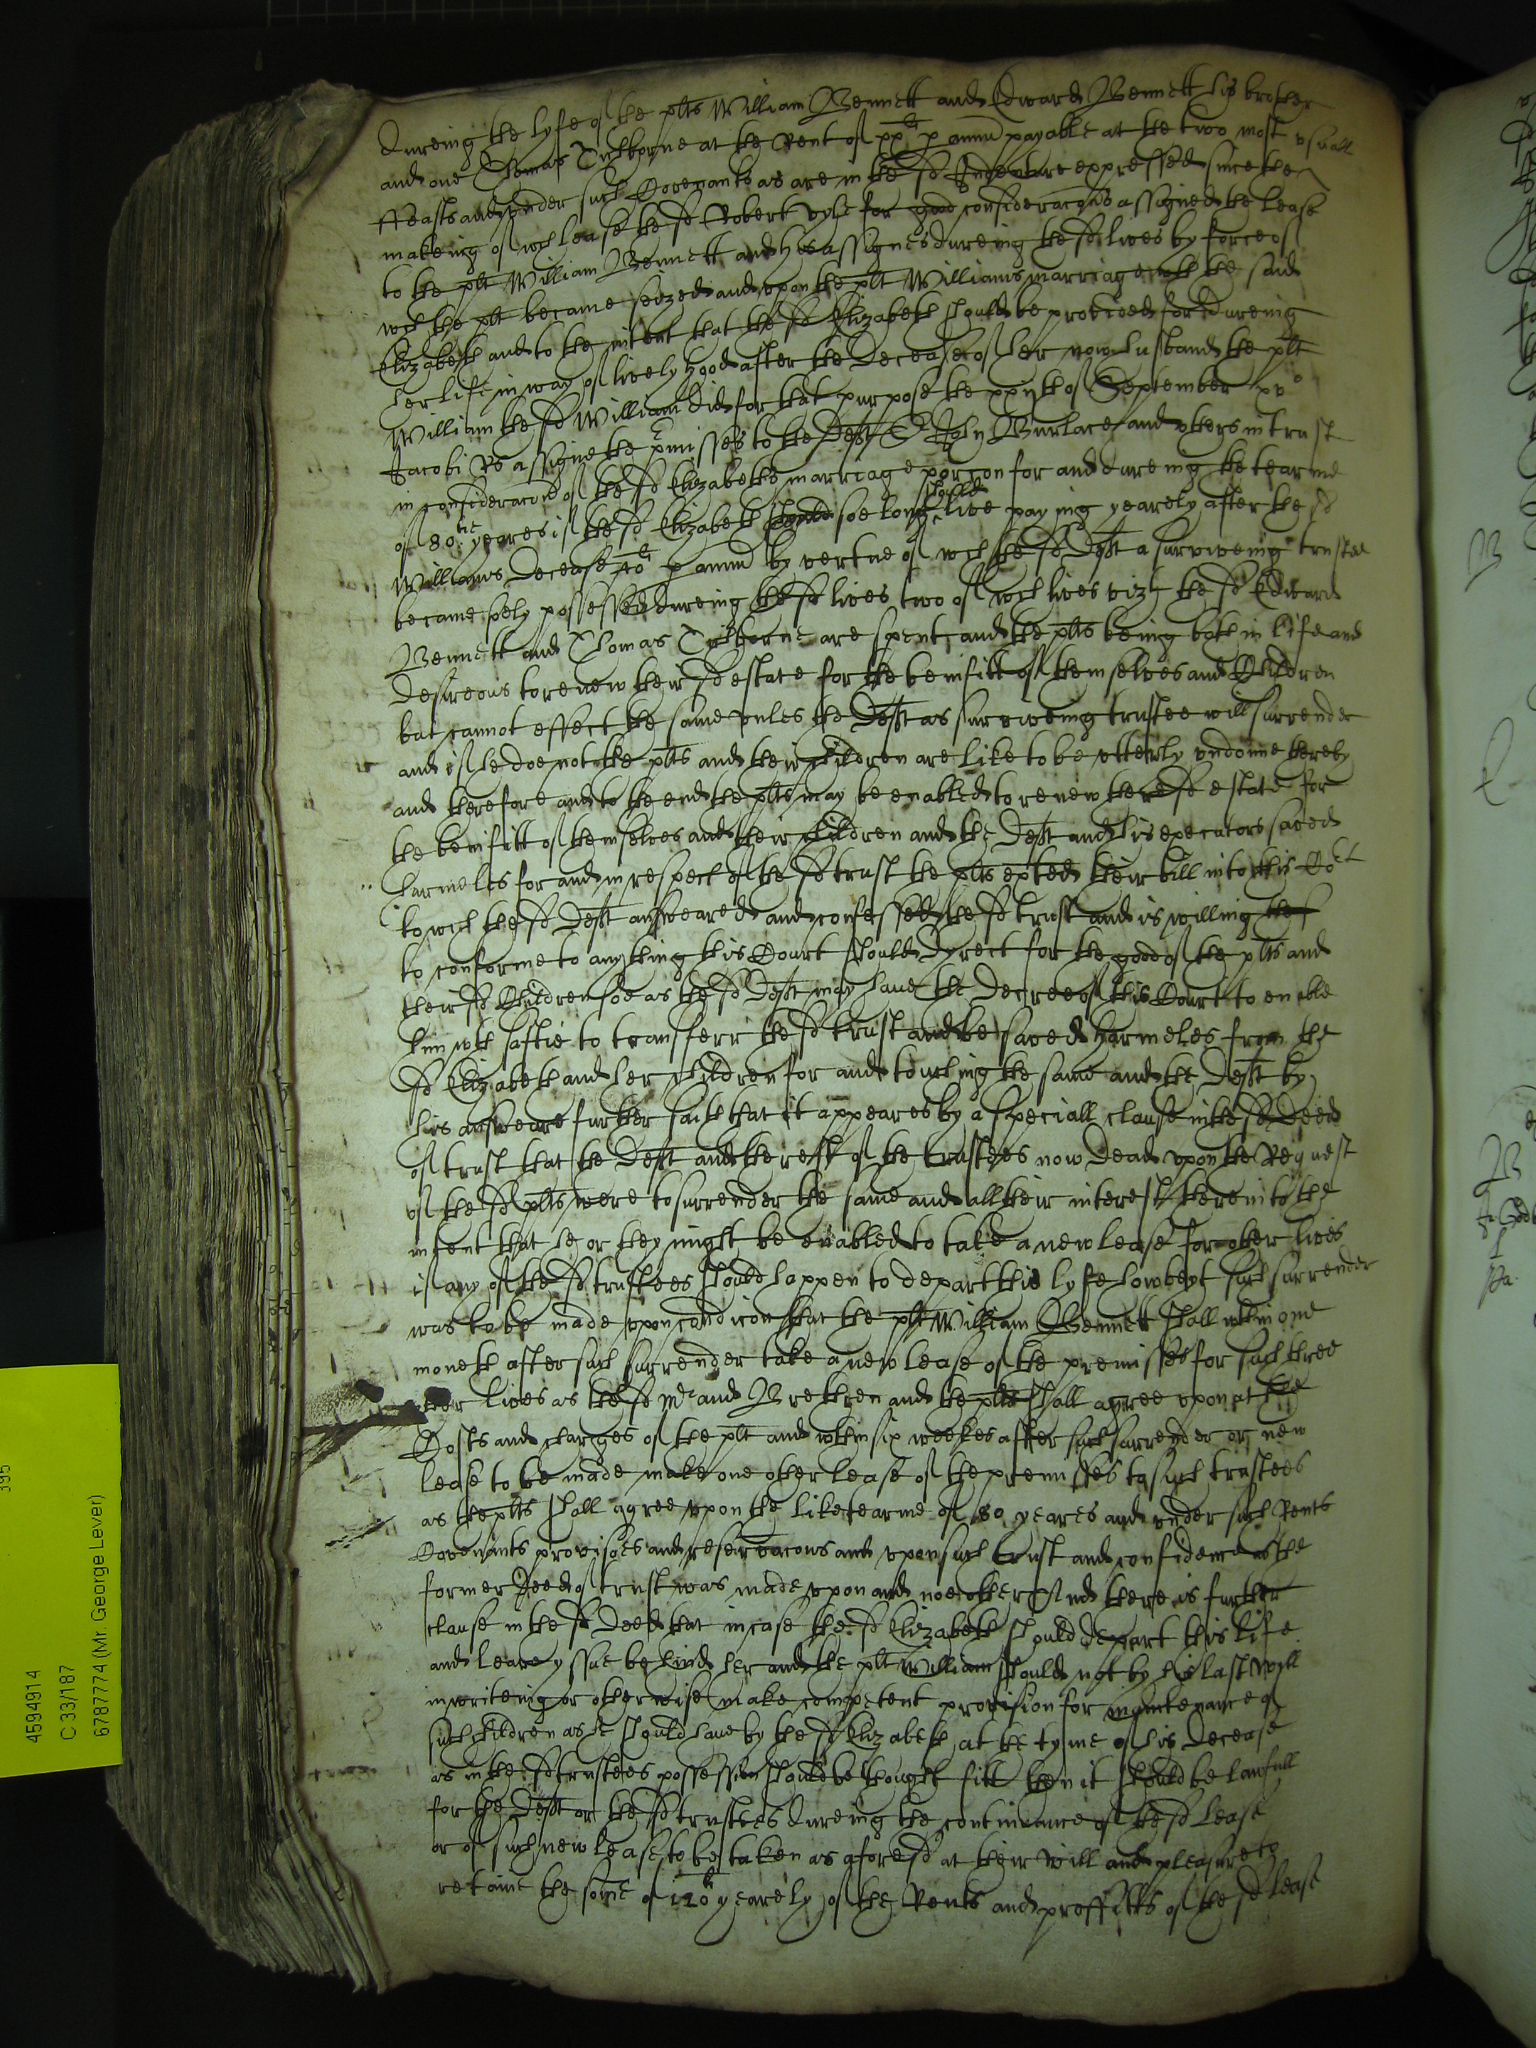 dureing the lyfe of the plts William Bennett and Edward Bennett his brother
and one Thomas Tichborne at the Rent of xxli p annu payable at the two most usuall
ffeasts and under such Covenants as are in the sd Indenture expressed since the
makeing of wch lease the sd Robert Vyle for good consideracons assigned the lease
to the plt William Bennett and his assignes dureing the sd lives by force of
wch the plt became seized and upon the plt Williams marriage wth the said
Elizabeth and to the intent that the sd Elizabeth should be provided for dureing
her life in way of livelyhood after the decease of her now husband the plt
William the sd William did for that purpose the xxijth of September xvo
Jacobi Rs assigne the pmisses to the Deft Sr John Burlace and others in trust
in consideracon of the sd Elizabeths marriage porcon for and dureing the tearme
of 80tie yeares if the sd Elizabeth should soe long should live paying yearely after the sd
Williams decease 40li p annu by vertue of wch the sd Deft a surviveing trustee
became sely possessed dureing the sd lives two of wch lives vizt the sd Edward
Bennett and Thomas Tichborne are spent and the plts being both in life and
desireous to renew their sd estate for the benifitt of themselves and Children
but cannot effect the same unles the Deft as surviveing trustee will surrender
and if he doe not the plts and their children are like to be utterly undonne thereby
and therefore and to the end the plts may be enabled to renew there sd estate for
the benifitt of themselves and their children and the Deft and his executors saved
harmeles for and in respect of the sd trust the plts exted their bill into this Cort
to wch the sd Deft answeared and confessed the sd trust and is willing the s
to conforme to any thing this Court should dyrect for the good of the plts and
their sd Children soe as the sd Deft may have the decree of this Court to enable
him wth saftie to transferr the sd trust and be saved harmeles from the
sd Elizabeth and her children for and touching the same and the Deft by
his answeare further saith that it appeares by a speciall clause in the sd Deed
of trust that the Deft and the rest of the trustees now dead upon the Request
of the sd plts were to surrender the same and all their interest therein to the
intent that he or they might be enabled to take a new lease for other lives
if any of the sd trustees should happen to depart this lyfe howbeyt such surrender
was to be made upon condicon that the plt William Bennett shall wthin one
moneth after such surrender take a new lease of the premisses for such three
other lives as the sd Mr and Brethren and the plts shall agree upon at the
Costs and charges of the plt and wthin six weekes after such surrender or new
lease to be made make one other lease of the premisses to such trustees
as the plts shall agree upon the like tearme of 80 yeares and under such Rents
Covenants provisoes and reservacons and upon such trust and confidence as the
former Deed of trust was made upon and noe other And there is further
clause in the sd Deed that in case the sd Elizabeth should depart this life
and leave yssue behind her and the plt William should not by his last Will
in writeing or otherwise make competent provision for maintenance of
such children as he should have by the sd Elizabeth at the tyme of his decease
as in the sd trustees possession should be thought fitt then it should be lawfull
for the Deft or the sd trustees dureing the continuance of the sd lease
or of such new lease to be taken as aforesd at their will and pleasure to
retaine the some of 120li yearely of the Rents and proffitts of the sd lease
4594914
C 33/187
6787774 (Mr. George Lever)
395